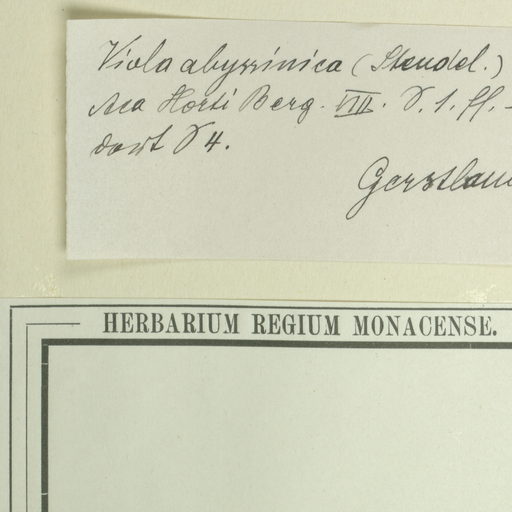 Viola abyssinica (Steudel.)
Aca Horti Berg. VIII. S. 1. ff. -
dort S 4.
Gerstlau
HERBARIUM REGIUM MONACENSE.